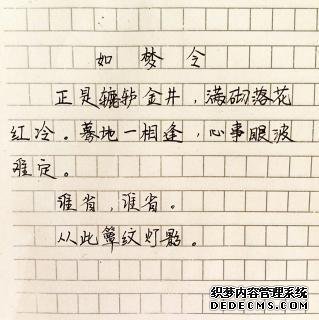 如梦令
正是辘轳金井，满砌落花
红冷。蓦地一相逢，心事眼波
难定。
谁省，谁省。
从此簟纹灯影。
织梦内容管理系统
DEDECMS.COM